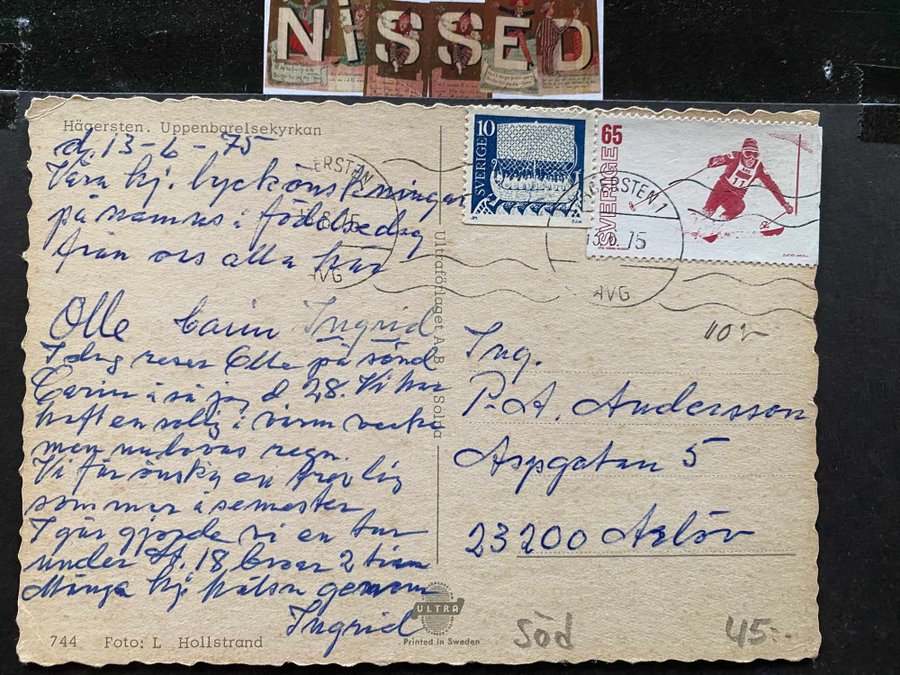 NISSED
Hägersten. Uppenbarelsekyrkan
d. 13-6-75
Våra hj. lyckönskningar
på namns i födelsedag
från oss alla här
Olle Carin Ingrid
I dag reser Olle på sönd
Carin å så jag d 28. Vi har
haft en i varm vecka
men nu lovas regn.
Vi får önska en trevlig
sommar å semester
I går gjorde vi en tur
under St. 18 broar 2 tim
Många hj hälsn genom
Ingrid
744 Foto: L Hollstrand
Ultraförlaget A.B. Solna
ULTRA
Printed in Sweden
10
SVERIGE
65
SVERIGE
11
HÄGERSTEN 1
13.6.75
AVG
10:-
Ing.
P-A. Andersson
Aspgatan 5
23200 Arlöv
Söd
45:-